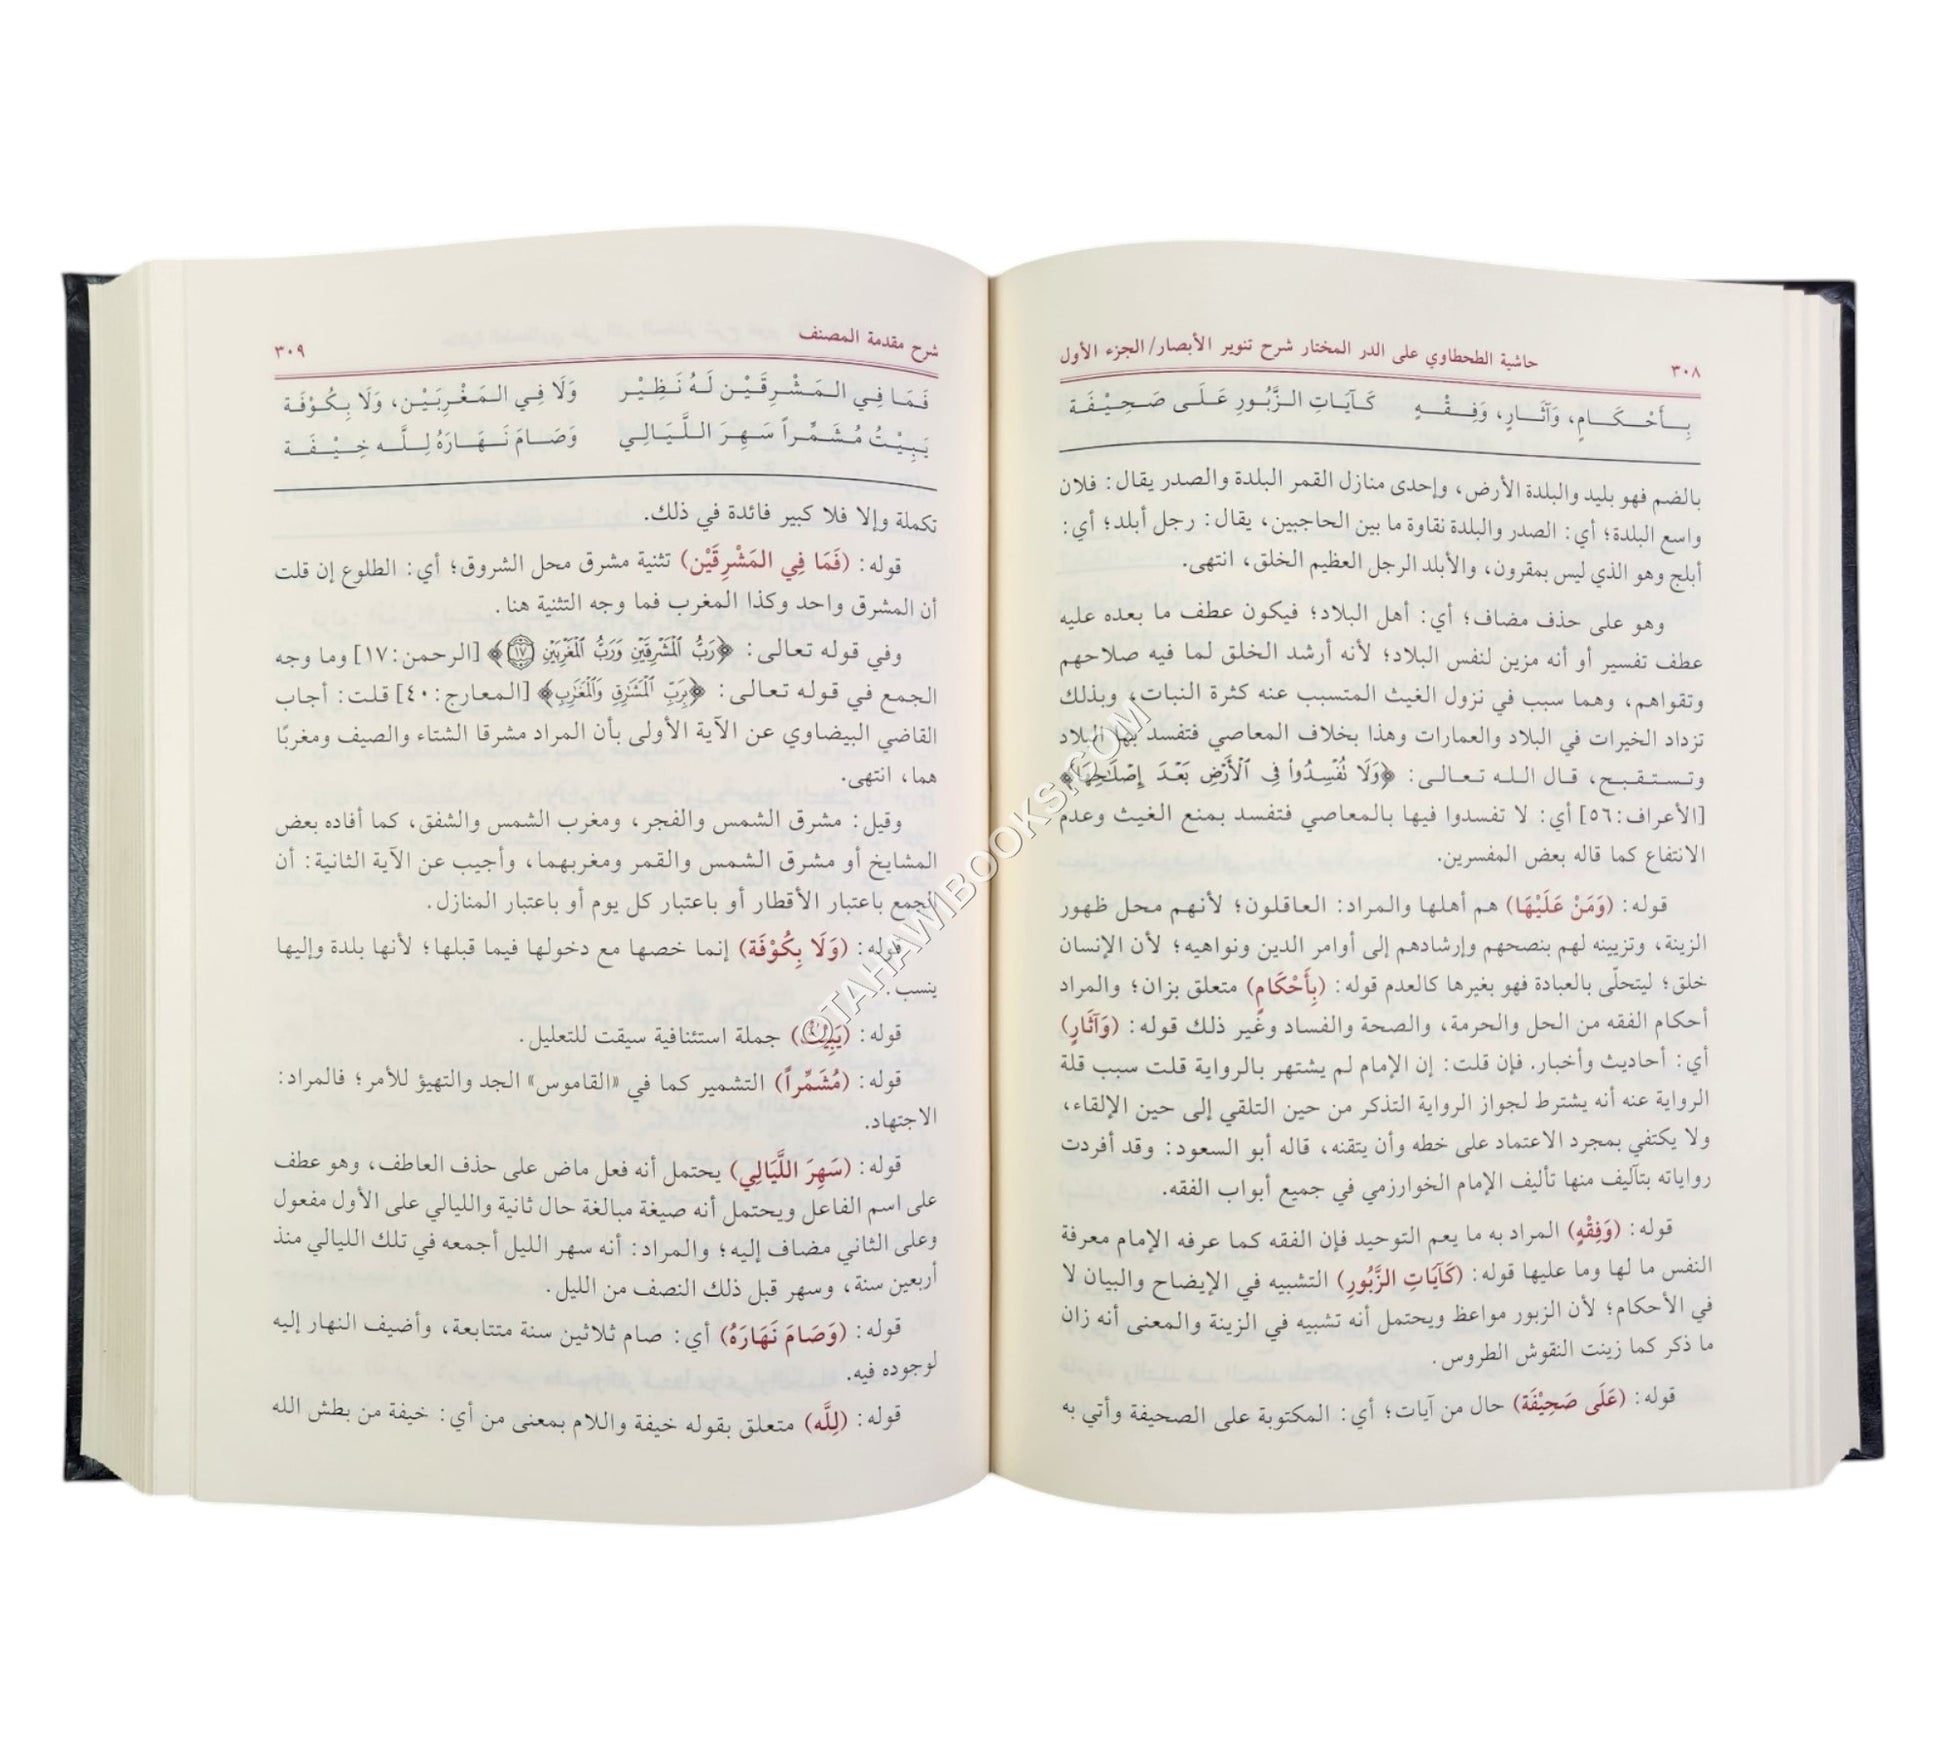 ٣٠٨ حاشية الطحطاوي على الدر المختار شرح تنوير الأبصار/الجزء الأول
بِـأَحْـكَـامٍ، وَآثَـارٍ، وَفِـقْـهٍ كَـآيَـاتِ الـزَّبُـورِ عَـلَـى صَـحِـيْـفَـة
بالضم فهو بليد والبلدة الأرض، وإحدى منازل القمر البلدة والصدر يقال: فلان
واسع البلدة؛ أي: الصدر والبلدة نقاوة ما بين الحاجبين، يقال: رجل أبلد؛ أي:
أبلج وهو الذي ليس بمقرون، والأبلد الرجل العظيم الخلق، انتهى.
وهو على حذف مضاف؛ أي: أهل البلاد؛ فيكون عطف ما بعده عليه
عطف تفسير أو أنه مزين لنفس البلاد؛ لأنه أرشد الخلق لما فيه صلاحهم
وتقواهم، وهما سبب في نزول الغيث المتسبب عنه كثرة النبات، وبذلك
تزداد الخيرات في البلاد والعمارات وهذا بخلاف المعاصي فتفسد بها البلاد
وتـستـقبـح، قـال الـلـه تـعـالـى: ﴿وَلَا تُفْسِدُوا۟ فِى ٱلْأَرْضِ بَعْدَ إِصْلَٰحِهَا﴾
[الأعراف:٥٦] أي: لا تفسدوا فيها بالمعاصي فتفسد بمنع الغيث وعدم
الانتفاع كما قاله بعض المفسرين.
قوله: (وَمَنْ عَلَيْهَا) هم أهلها والمراد: العاقلون؛ لأنهم محل ظهور
الزينة، وتزيينه لهم بنصحهم وإرشادهم إلى أوامر الدين ونواهيه؛ لأن الإنسان
خلق؛ ليتحلّى بالعبادة فهو بغيرها كالعدم قوله: (بِأَحْكَامٍ) متعلق بزان؛ والمراد
أحكام الفقه من الحل والحرمة، والصحة والفساد وغير ذلك قوله: (وَآثَارٍ)
أي: أحاديث وأخبار. فإن قلت: إن الإمام لم يشتهر بالرواية قلت سبب قلة
الرواية عنه أنه يشترط لجواز الرواية التذكر من حين التلقي إلى حين الإلقاء،
ولا يكتفي بمجرد الاعتماد على خطه وأن يتقنه، قاله أبو السعود: وقد أفردت
رواياته بتآليف منها تأليف الإمام الخوارزمي في جميع أبواب الفقه.
قوله: (وَفِقْهٍ) المراد به ما يعم التوحيد فإن الفقه كما عرفه الإمام معرفة
النفس ما لها وما عليها قوله: (كَآيَاتِ الزَّبُورِ) التشبيه في الإيضاح والبيان لا
في الأحكام؛ لأن الزبور مواعظ ويحتمل أنه تشبيه في الزينة والمعنى أنه زان
ما ذكر كما زينت النقوش الطروس.
قوله: (عَلَى صَحِيْفَة) حال من آيات؛ أي: المكتوبة على الصحيفة وأتي به
شرح مقدمة المصنف ٣٠٩
فَـمَـا فِـي الـمَـشْـرِقَـيْـن لَـهُ نَـظِـيْـر وَلَا فِـي الـمَـغْـرِبَـيْـن، وَلَا بِـكُـوْفَـة
يَـبِـيْـتُ مُـشَـمِّـراً سَـهِـرَ الـلَّـيَـالِـي وَصَـامَ نَـهَـارَهُ لِـلَّـه خِـيْـفَـة
تكملة وإلا فلا كبير فائدة في ذلك.
قوله: (فَمَا فِي المَشْرِقَيْن) تثنية مشرق محل الشروق؛ أي: الطلوع إن قلت
أن المشرق واحد وكذا المغرب فما وجه التثنية هنا.
وفي قوله تعالى: ﴿رَبُّ ٱلْمَشْرِقَيْنِ وَرَبُّ ٱلْمَغْرِبَيْنِ ١٧﴾ [الرحمن:١٧] وما وجه
الجمع في قوله تعالى: ﴿بِرَبِّ ٱلْمَشَٰرِقِ وَٱلْمَغَٰرِبِ﴾ [المعارج:٤٠] قلت: أجاب
القاضي البيضاوي عن الآية الأولى بأن المراد مشرقا الشتاء والصيف ومغربًا
هما، انتهى.
وقيل: مشرق الشمس والفجر، ومغرب الشمس والشفق، كما أفاده بعض
المشايخ أو مشرق الشمس والقمر ومغربهما، وأجيب عن الآية الثانية: أن
الجمع باعتبار الأقطار أو باعتبار كل يوم أو باعتبار المنازل.
قوله: (وَلَا بِكُوْفَة) إنما خصها مع دخولها فيما قبلها؛ لأنها بلدة وإليها
ينسب.
قوله: (يَبِيْتُ) جملة استئنافية سيقت للتعليل.
قوله: (مُشَمِّراً) التشمير كما في «القاموس» الجد والتهيؤ للأمر؛ فالمراد:
الاجتهاد.
قوله: (سَهِرَ اللَّيَالِي) يحتمل أنه فعل ماض على حذف العاطف، وهو عطف
على اسم الفاعل ويحتمل أنه صيغة مبالغة حال ثانية والليالي على الأول مفعول
وعلى الثاني مضاف إليه؛ والمراد: أنه سهر الليل أجمعه في تلك الليالي منذ
أربعين سنة، وسهر قبل ذلك النصف من الليل.
قوله: (وَصَامَ نَهَارَهُ) أي: صام ثلاثين سنة متتابعة، وأضيف النهار إليه
لوجوده فيه.
قوله: (لِلَّه) متعلق بقوله خيفة واللام بمعنى من أي: خيفة من بطش الله
©TAHAWIBOOKS.COM